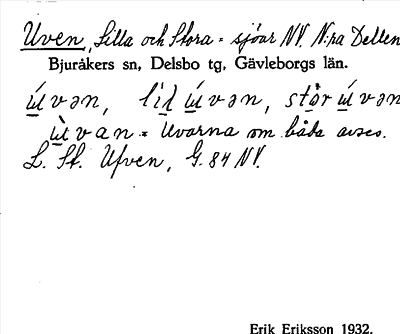 Uven, Lilla och Stora = sjöar NV. N:ra Dellen
Bjuråkers sn, Delsbo tg, Gävleborgs län.
úvən, lid úvən, stor úvən
ùvan = Uvarna om båda avses.
L. St. Ufven, G. 84 NV.
Erik Eriksson 1932.